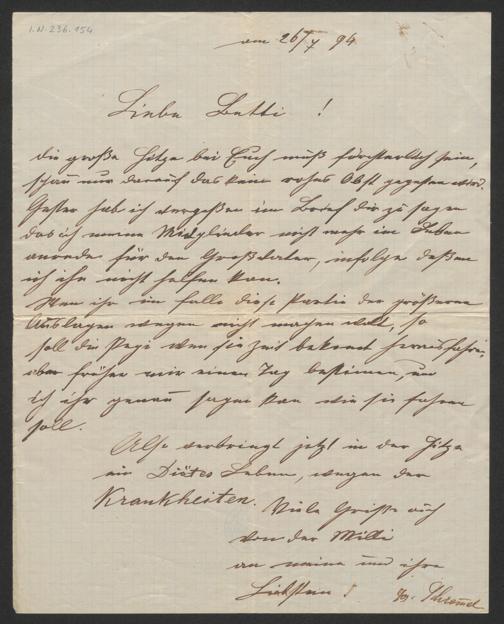 I.N. 236.154
am 26/7 94
Liebe Betti !
die große Hitze bei Euch muß fürchterlich sein,
schau nur darauf das kein rohes Obst gegessen wird.
Gestern hab ich vergeßen im Brief dir zu sagen
das ich meine Mitglieder nicht mehr im Leben
für den Großvater, infolge deßen
ich ihr nicht helfen kan.
Wen ihr im falle diese Partie der größeren
Auslagen wegen nicht machen wolt, so
soll die Pepi wen sie Zeit bekomt herausfahren,
aber früher mir einen Tag bestimen,
ich ihr genau sagen kan wie sie fahren
soll.
Also verbringt jetzt in der Hitze
ein Diätes Leben, wegen der
Krankheiten. Viele Grüße auch
von der Milli
an meine und ihre
Liebsten !